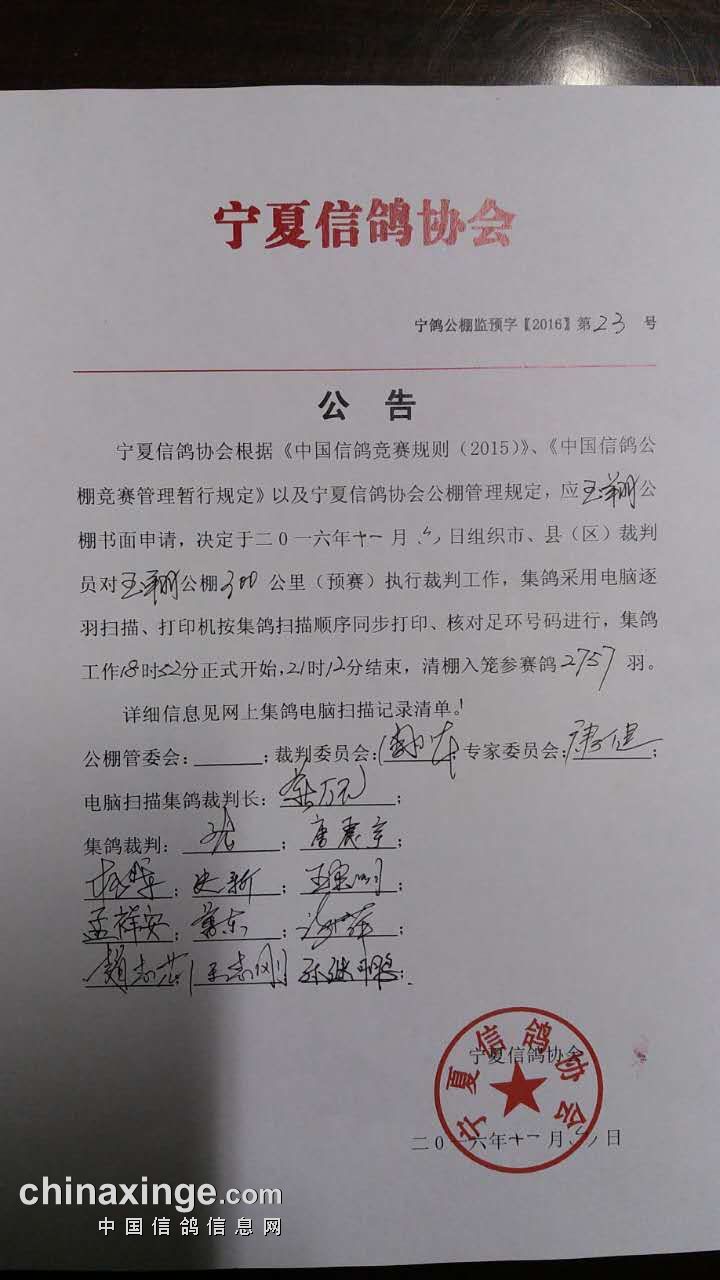 宁夏信鸽协会
宁鸽公棚监预字【2016】第23号
公 告
宁夏信鸽协会根据《中国信鸽竞赛规则（2015）》、《中国信鸽公
棚竞赛管理暂行规定》以及宁夏信鸽协会公棚管理规定，应玉翔公
棚书面申请，决定于二0一六年十一月 日组织市、县（区）裁判
员对玉翔公棚300公里（预赛）执行裁判工作，集鸽采用电脑逐
羽扫描、打印机按集鸽扫描顺序同步打印、核对足环号码进行，集鸽
工作18时52分正式开始，21时12分结束，清棚入笼参赛鸽2757羽。
详细信息见网上集鸽电脑扫描记录清单。
公棚管委会：______；裁判委员会： ；专家委员会：康健；
电脑扫描集鸽裁判长： ；
集鸽裁判： ；唐震宇；
；史新； ；
孟祥安； ； ；
赵志芸；王志刚； ；
宁夏信鸽协会
宁夏信鸽协会
二0一六年十一月 日
chinaxinge.com
中国信鸽信息网